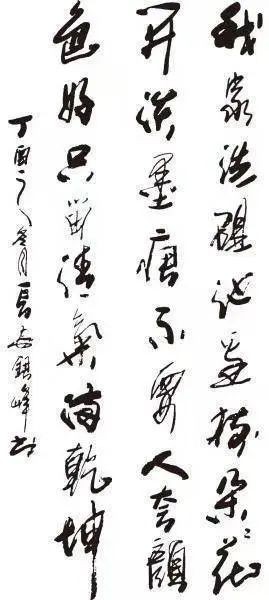 我家洗硯池边树朵朵花
开淡墨痕不要人夸顏
色好只留清氣满乾坤
丁酉之冬月長安峰书